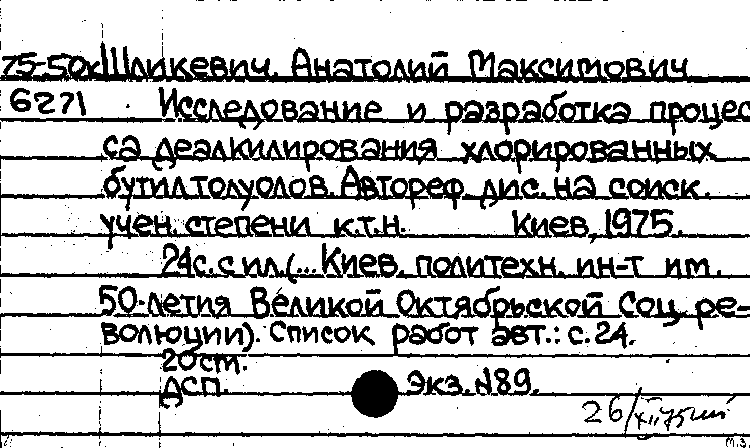 75-50к Шликевич, Анатолий Максимович
6271 Исследование и разработка процес
са деалкилирования хлорированных
бутилтолуолов. Автореф. дис. на соиск.
учен. степени к.т.н. Киев, 1975.
24с. с ил. (... Киев. политехн. ин-т им.
50-летия Великой Октябрьской Соц. ре-
волюции). Список работ авт.: с. 24.
20 ст.
ДСП. Экз. №89.
26/XII 75
М.З.